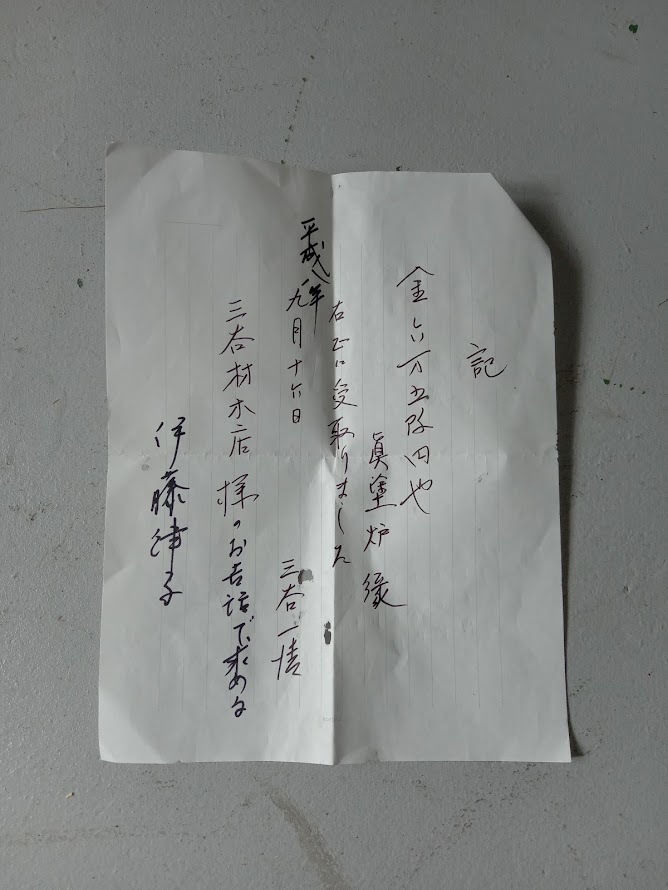 記
金六万五阡円也
眞塗炉縁
右正に受取りました
平成八年
九月十六日
三谷一清
三谷材木店様のお世話で求める
伊藤津子